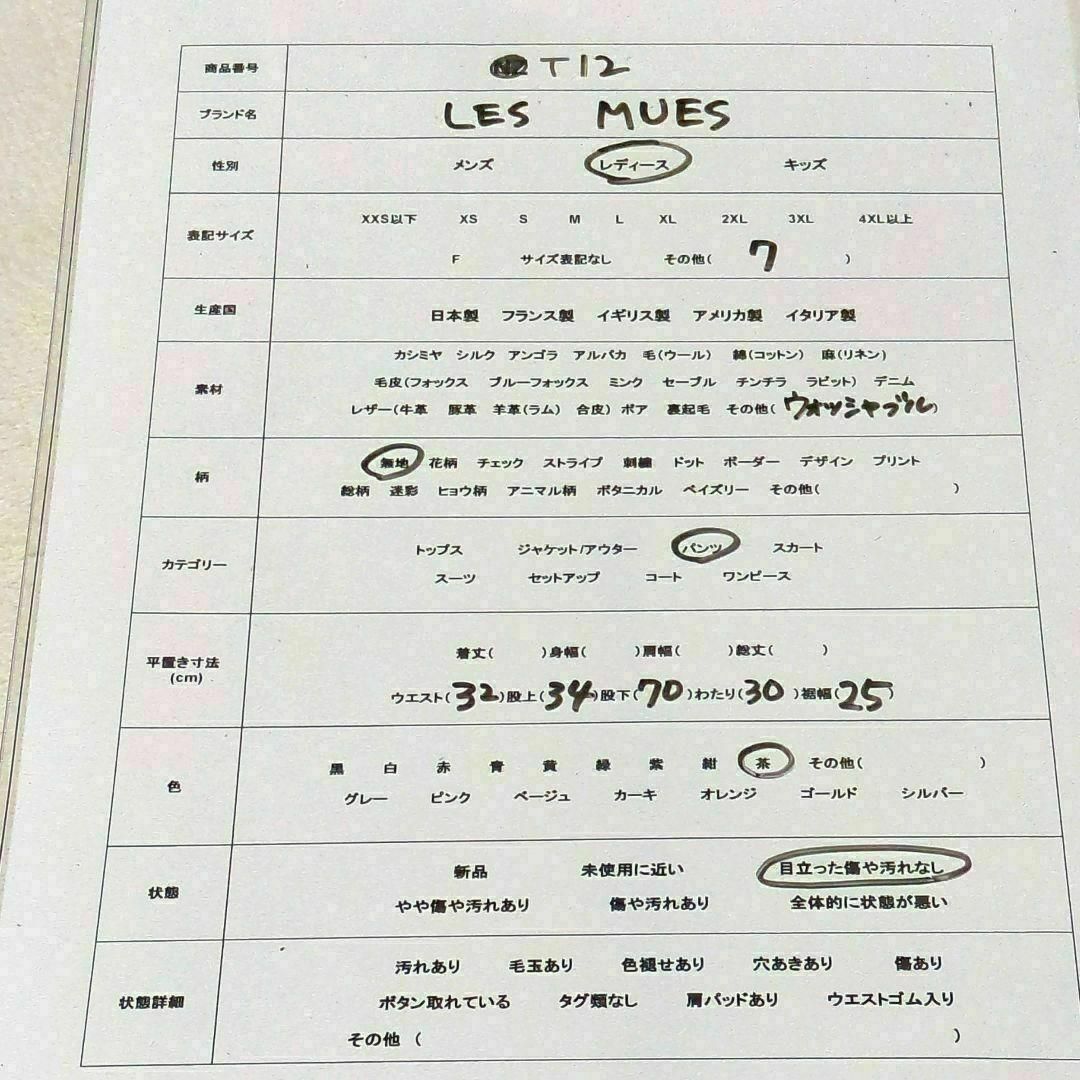 商品番号 T12
ブランド名 LES MUES
性別 メンズ レディース キッズ
表記サイズ
XXS以下 XS S M L XL 2XL 3XL 4XL以上
F サイズ表記なし その他( 7 )
生産国 日本製 フランス製 イギリス製 アメリカ製 イタリア製
素材
カシミヤ シルク アンゴラ アルパカ 毛(ウール) 綿(コットン) 麻(リネン)
毛皮(フォックス ブルーフォックス ミンク セーブル チンチラ ラビット) デニム
レザー(牛革 豚革 羊革(ラム) 合皮) ボア 裏起毛 その他( ウォッシャブル)
柄
無地 花柄 チェック ストライプ 刺繍 ドット ボーダー デザイン プリント
総柄 迷彩 ヒョウ柄 アニマル柄 ボタニカル ペイズリー その他( )
カテゴリー
トップス ジャケット/アウター パンツ スカート
スーツ セットアップ コート ワンピース
平置き寸法
(cm)
着丈( )身幅( )肩幅( )総丈( )
ウエスト(32)股上(34)股下(70)わたり(30)裾幅(25)
色
黒 白 赤 青 黄 緑 紫 紺 茶 その他( )
グレー ピンク ベージュ カーキ オレンジ ゴールド シルバー
状態
新品 未使用に近い 目立った傷や汚れなし
やや傷や汚れあり 傷や汚れあり 全体的に状態が悪い
状態詳細
汚れあり 毛玉あり 色褪せあり 穴あきあり 傷あり
ボタン取れている タグ類なし 肩パッドあり ウエストゴム入り
その他 ( )